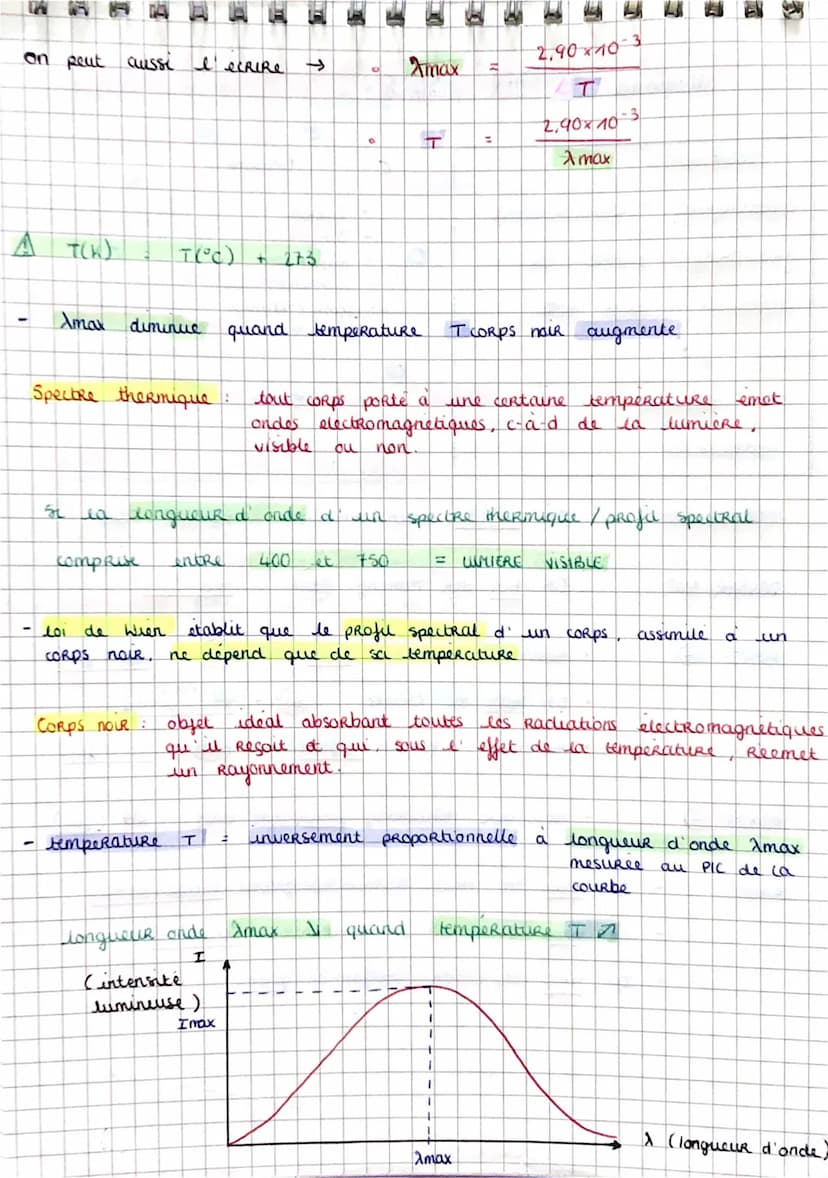 on peut aussi l'écrire → ◦ λmax = 2,90 × 10⁻³ / T
◦ T = 2,90 × 10⁻³ / λmax
⚠ T(K) = T(°C) + 273
- λmax diminue quand température T corps noir augmente
Spectre thermique : tout corps porté à une certaine température émet
ondes électromagnétiques, c-à-d de la lumière,
visible ou non.
Si la longueur d'onde d'un spectre thermique / profil spectral
comprise entre 400 et 750 = LUMIERE VISIBLE
- loi de Wien établit que le profil spectral d'un corps, assimilé à un
corps noir, ne dépend que de sa température
Corps noir : objet idéal absorbant toutes les radiations électromagnétiques
qu'il reçoit et qui, sous l'effet de la température, réemet
un rayonnement.
- température T = inversement proportionnelle à longueur d'onde λmax
mesurée au PIC de la
courbe
longueur onde λmax ↘ quand température T ↗
I
(intensité
lumineuse)
Imax
λ (longueur d'onde)
λmax